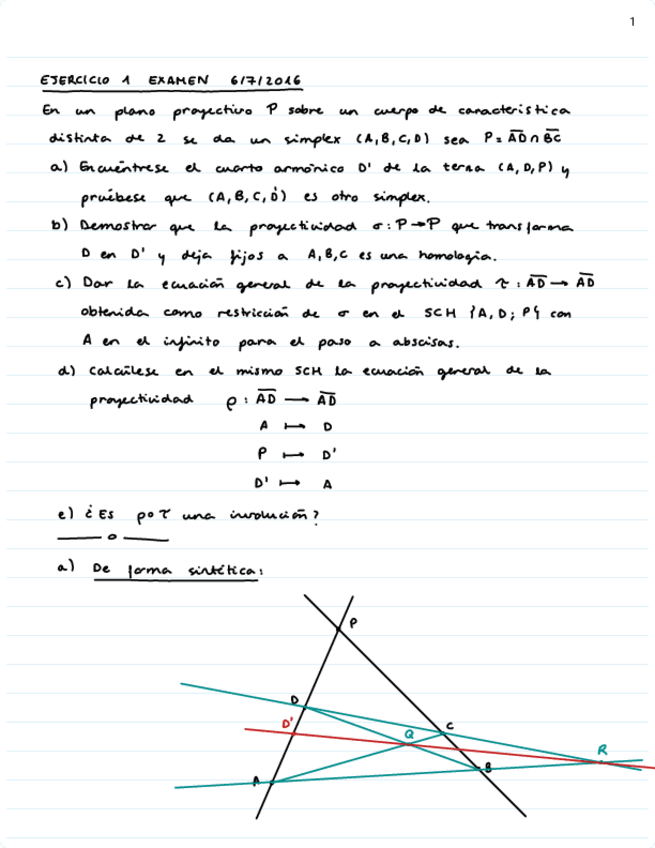 1
EJERCICIO 1 EXAMEN 6/7/2016
En un plano proyectivo P sobre un cuerpo de caracteristica
distinta de 2 se da un simplex (A,B,C,D) sea P = A̅D̅ ∩ B̅C̅
a) Encuéntrese el cuarto armónico D' de la terna (A,D,P) y
pruébese que (A,B,C,D') es otro simplex.
b) Demostrar que la proyectividad σ: P→P que transforma
D en D' y deja fijos a A,B,C es una homologia.
c) Dar la ecuación general de la proyectividad τ: A̅D̅ → A̅D̅
obtenida como restricción de σ en el SCH {A,D; P} con
A en el infinito para el paso a abscisas.
d) Calcúlese en el mismo SCH la ecuación general de la
proyectividad ρ: A̅D̅ → A̅D̅
A ↦ D
P ↦ D'
D' ↦ A
e) ¿Es ρ∘τ una involución?
o
a) De forma sintética:
P
D
D'
C
Q
R
A
B